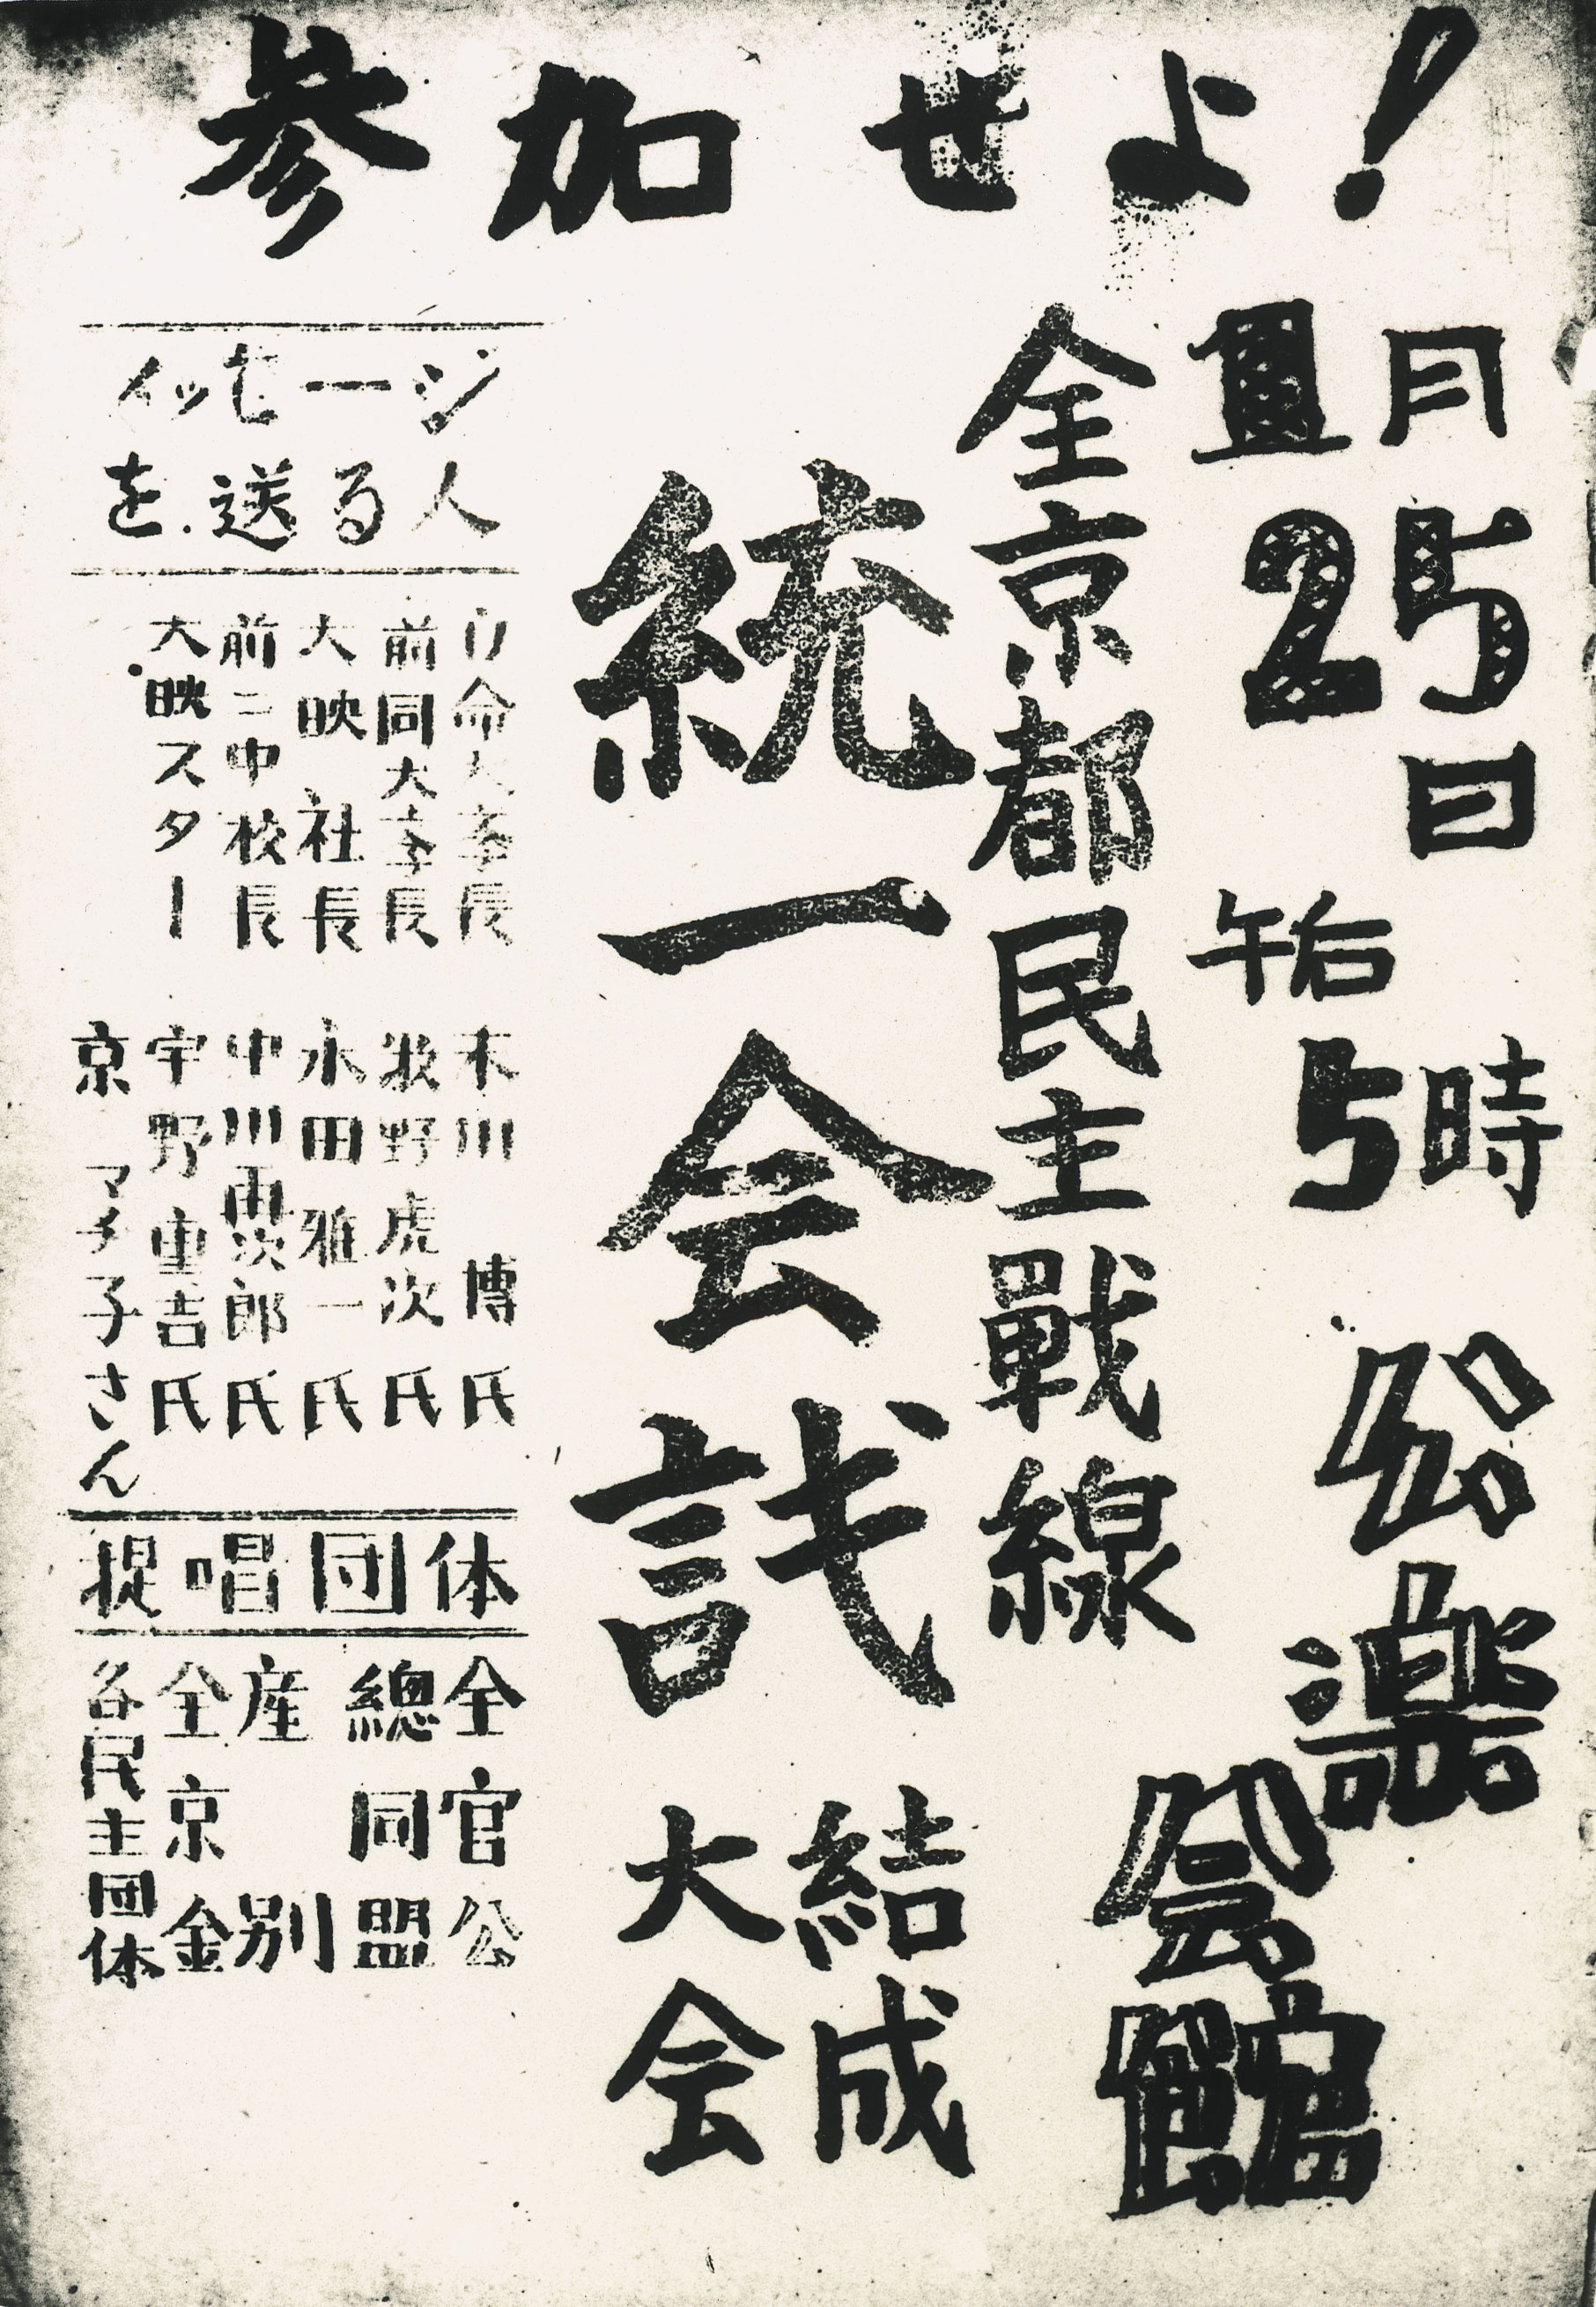 参加せよ!
1月
25日
午后
5時
公楽会館
全京都民主戰線
統一会議
結成
大会
メッセージ
を送る人
立命大学長 末川 博氏
前同大学長 牧野虎次氏
大映社長 永田雅一氏
前二中校長 中川再次郎氏
大映スター 宇野重吉氏
京マチ子さん
提唱団体
全官公
總同盟
産別
全京金
各民主団体